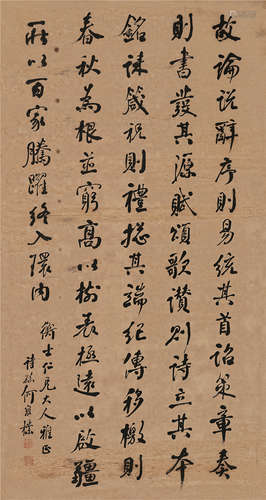 故論說辭序則易統其首詔策章奏
則書發其源賦頌歌讚則詩立其本
銘誄箴祝則禮摠其端紀傳移檄則
春秋為根並窮高以樹表極遠以啟疆
所以百家騰躍終入環內
衡士仁兄大人雅正
詩孫何維樸